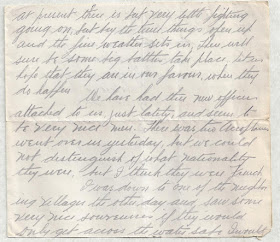 at present there is but very little fighting
going on, but by the time things open up
and the fine weather sets in, there will
sure to some big battles take place, let us
hope that they are in our favour, when they
do happen.
We have had three new officers
attached to us, just lately, and seem to
be very nice men. There was two aeroplanes
went over us yesterday, but we could
not distinguish of what nationality
they were, but I think they were french
I was down to one of the neighbor
ing villages the other day and saw some
very nice souvenirs if they would
only get across the water safe I would